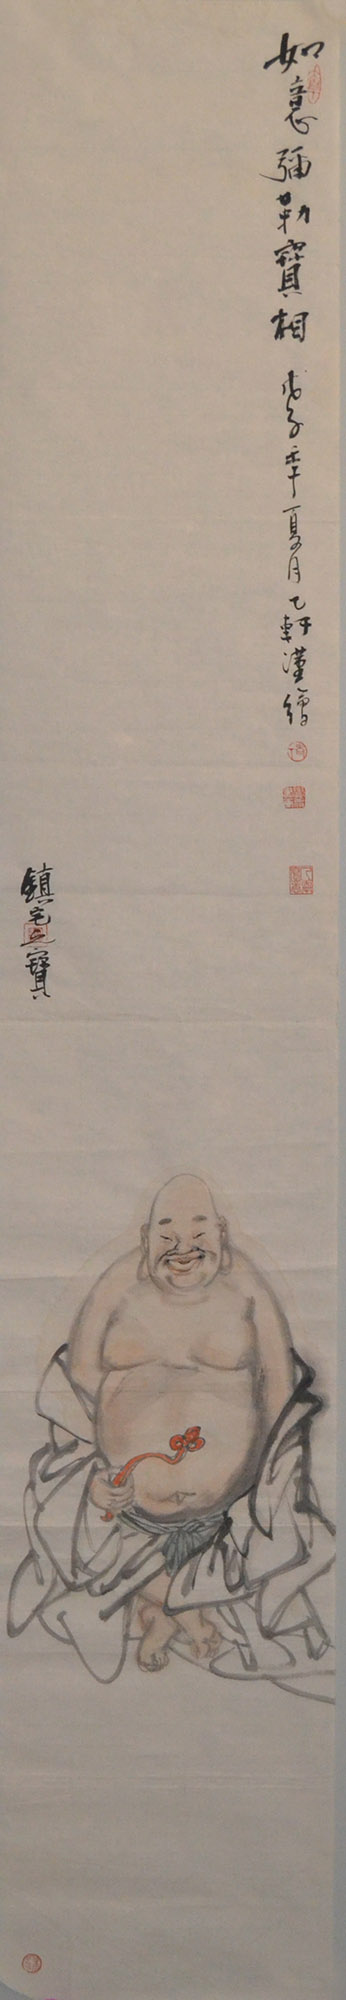 如意彌勒寶相
戊子年夏月乙軒漢繪
鎮宅之寶